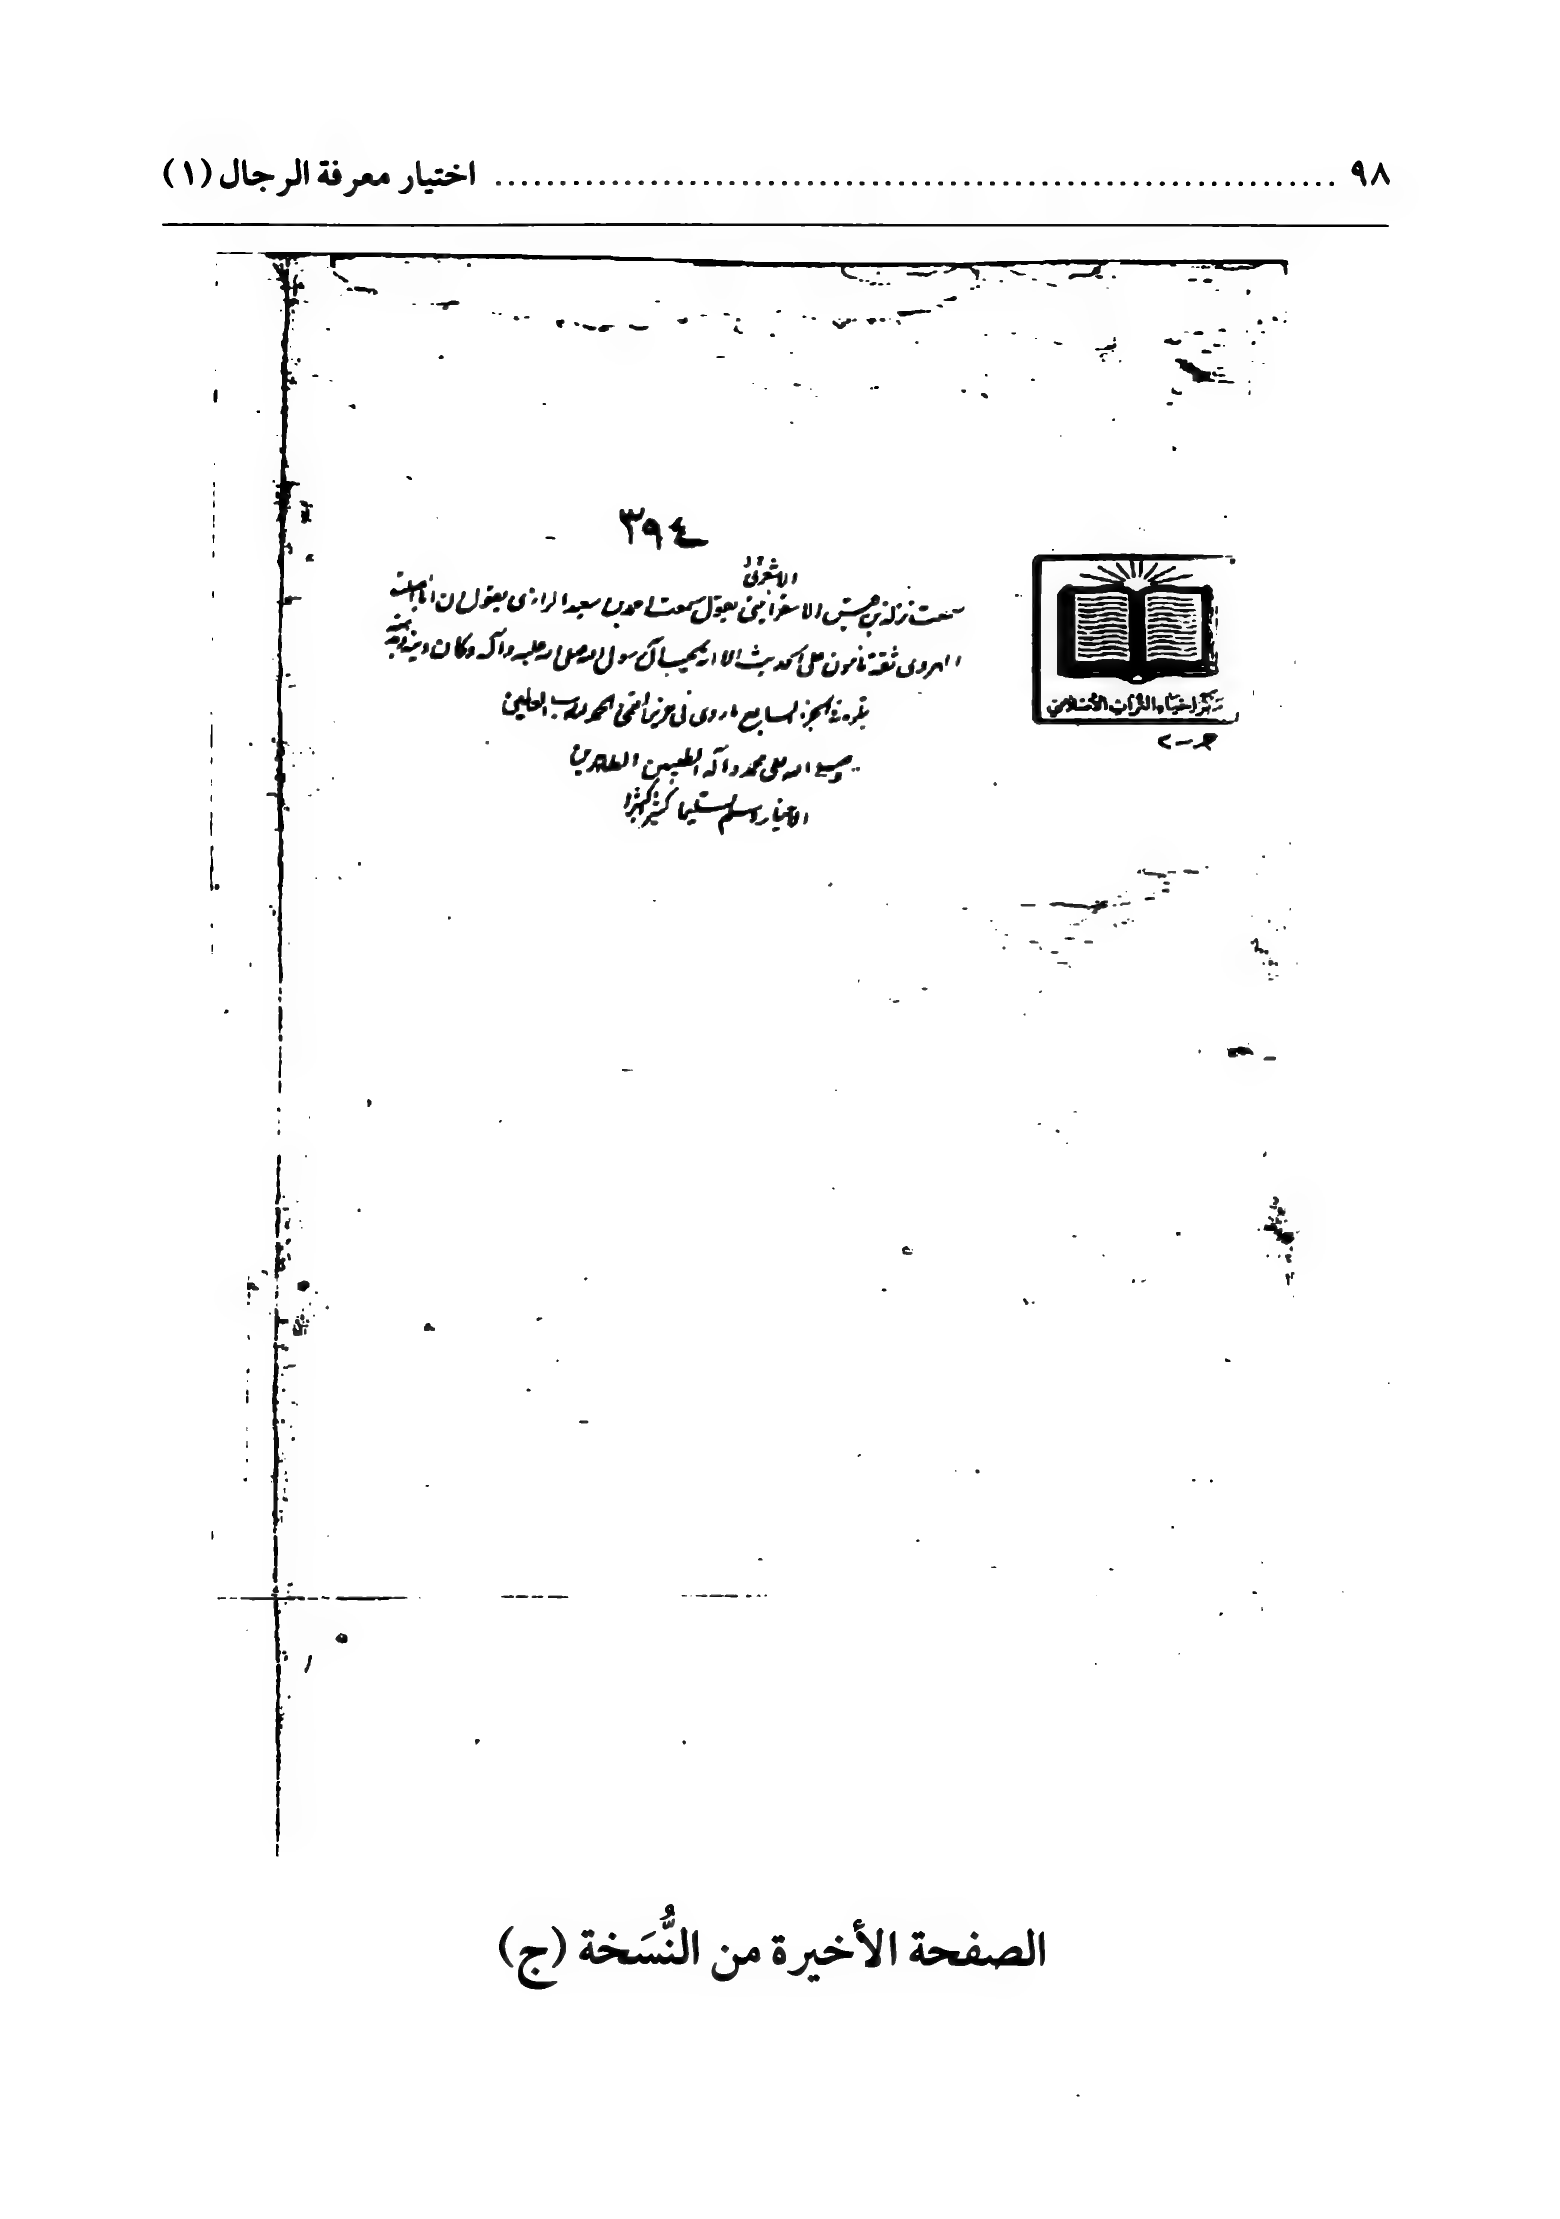 ٩٨ ........................................ اختيار معرفة الرجال (١)
٣٩٤
سمعت يقول سمعت احمد بن سعيد الرازى يقول ان ابا الصلت
الهروى ثقة مأمون على الحديث الا انه يحب آل رسول الله صلى الله عليه وآله وكان دينه ومذهبه
يتلوه الجزء السابع ما روى فى الحمد لله رب العلمين
وصلى الله على محمد وآله الطيبين الطاهرين
الاخيار وسلم تسليما كثيرا كثيرا
مركز احياء التراث الاسلامي
الصفحة الأخيرة من النُّسَخة (ج)